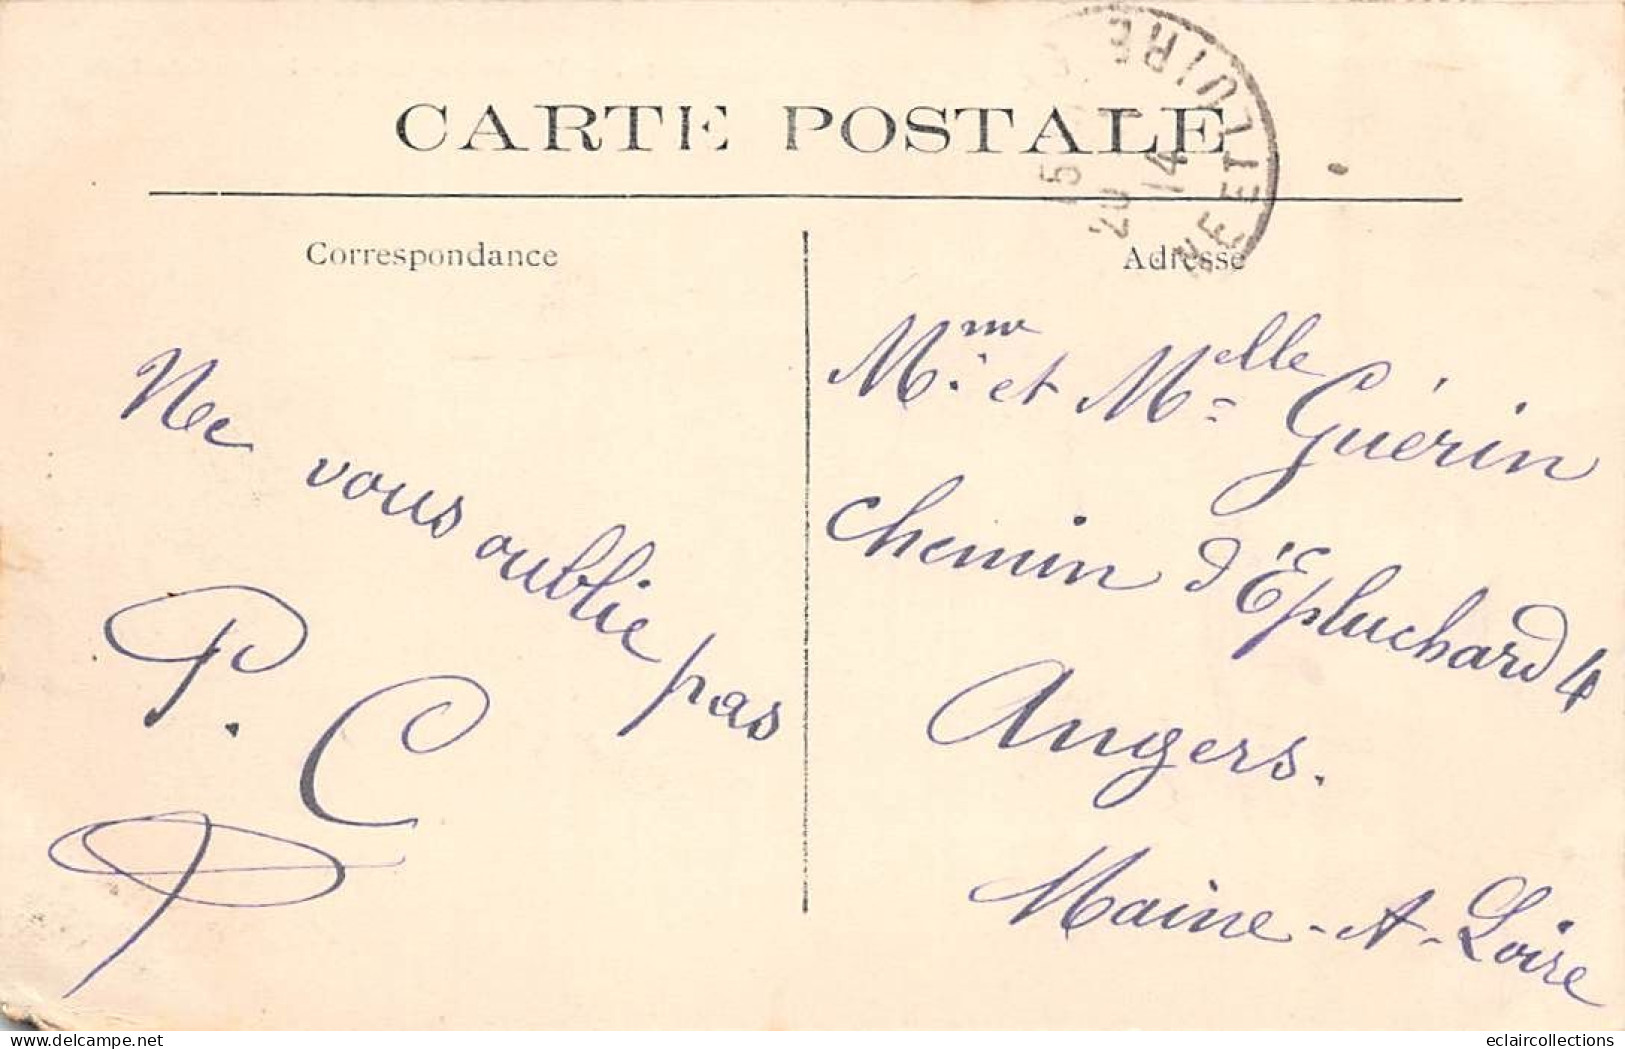 CARTE POSTALE
Correspondance
Ne vous oublie pas
P. C
Adresse
Mme et Melle Guérin
chemin d'Épluchard 4
Angers.
Maine-et-Loire
15
20
14
NE ET L
VIRE
delcampe.net
eclaircollections